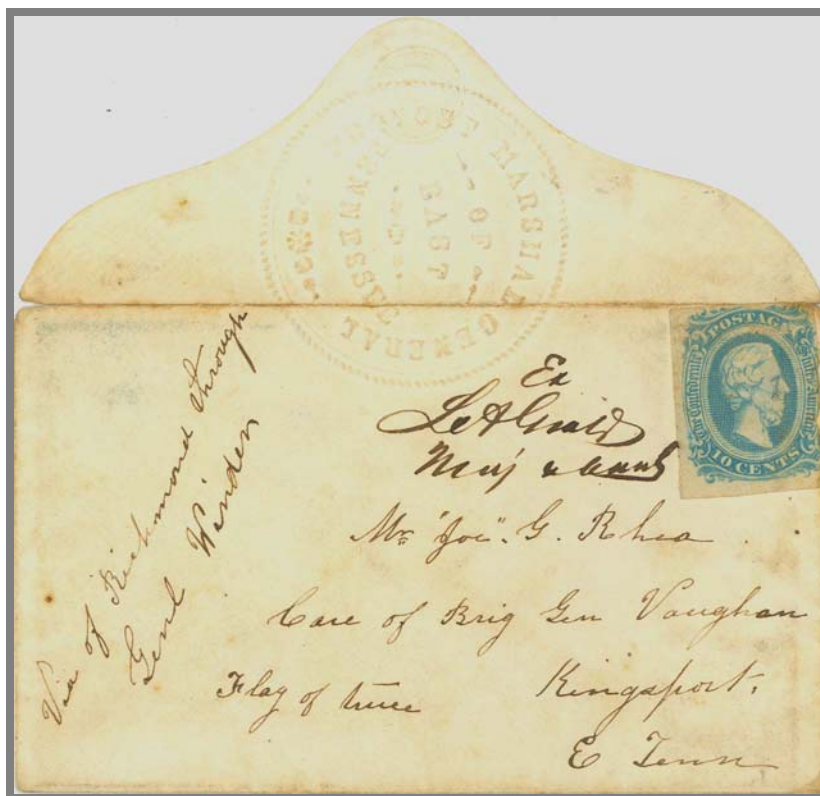 PROVOST MARSHAL GENERAL
OF
EAST
TENNESSEE
POSTAGE
The Confederate States America
10 CENTS
Via of Richmond through
Genl Winder
Ex
Maj &
Mr "Joe". G. Rhea
Care of Brig Gen Vaughan
Flag of truce
Kingsport,
E Tenn